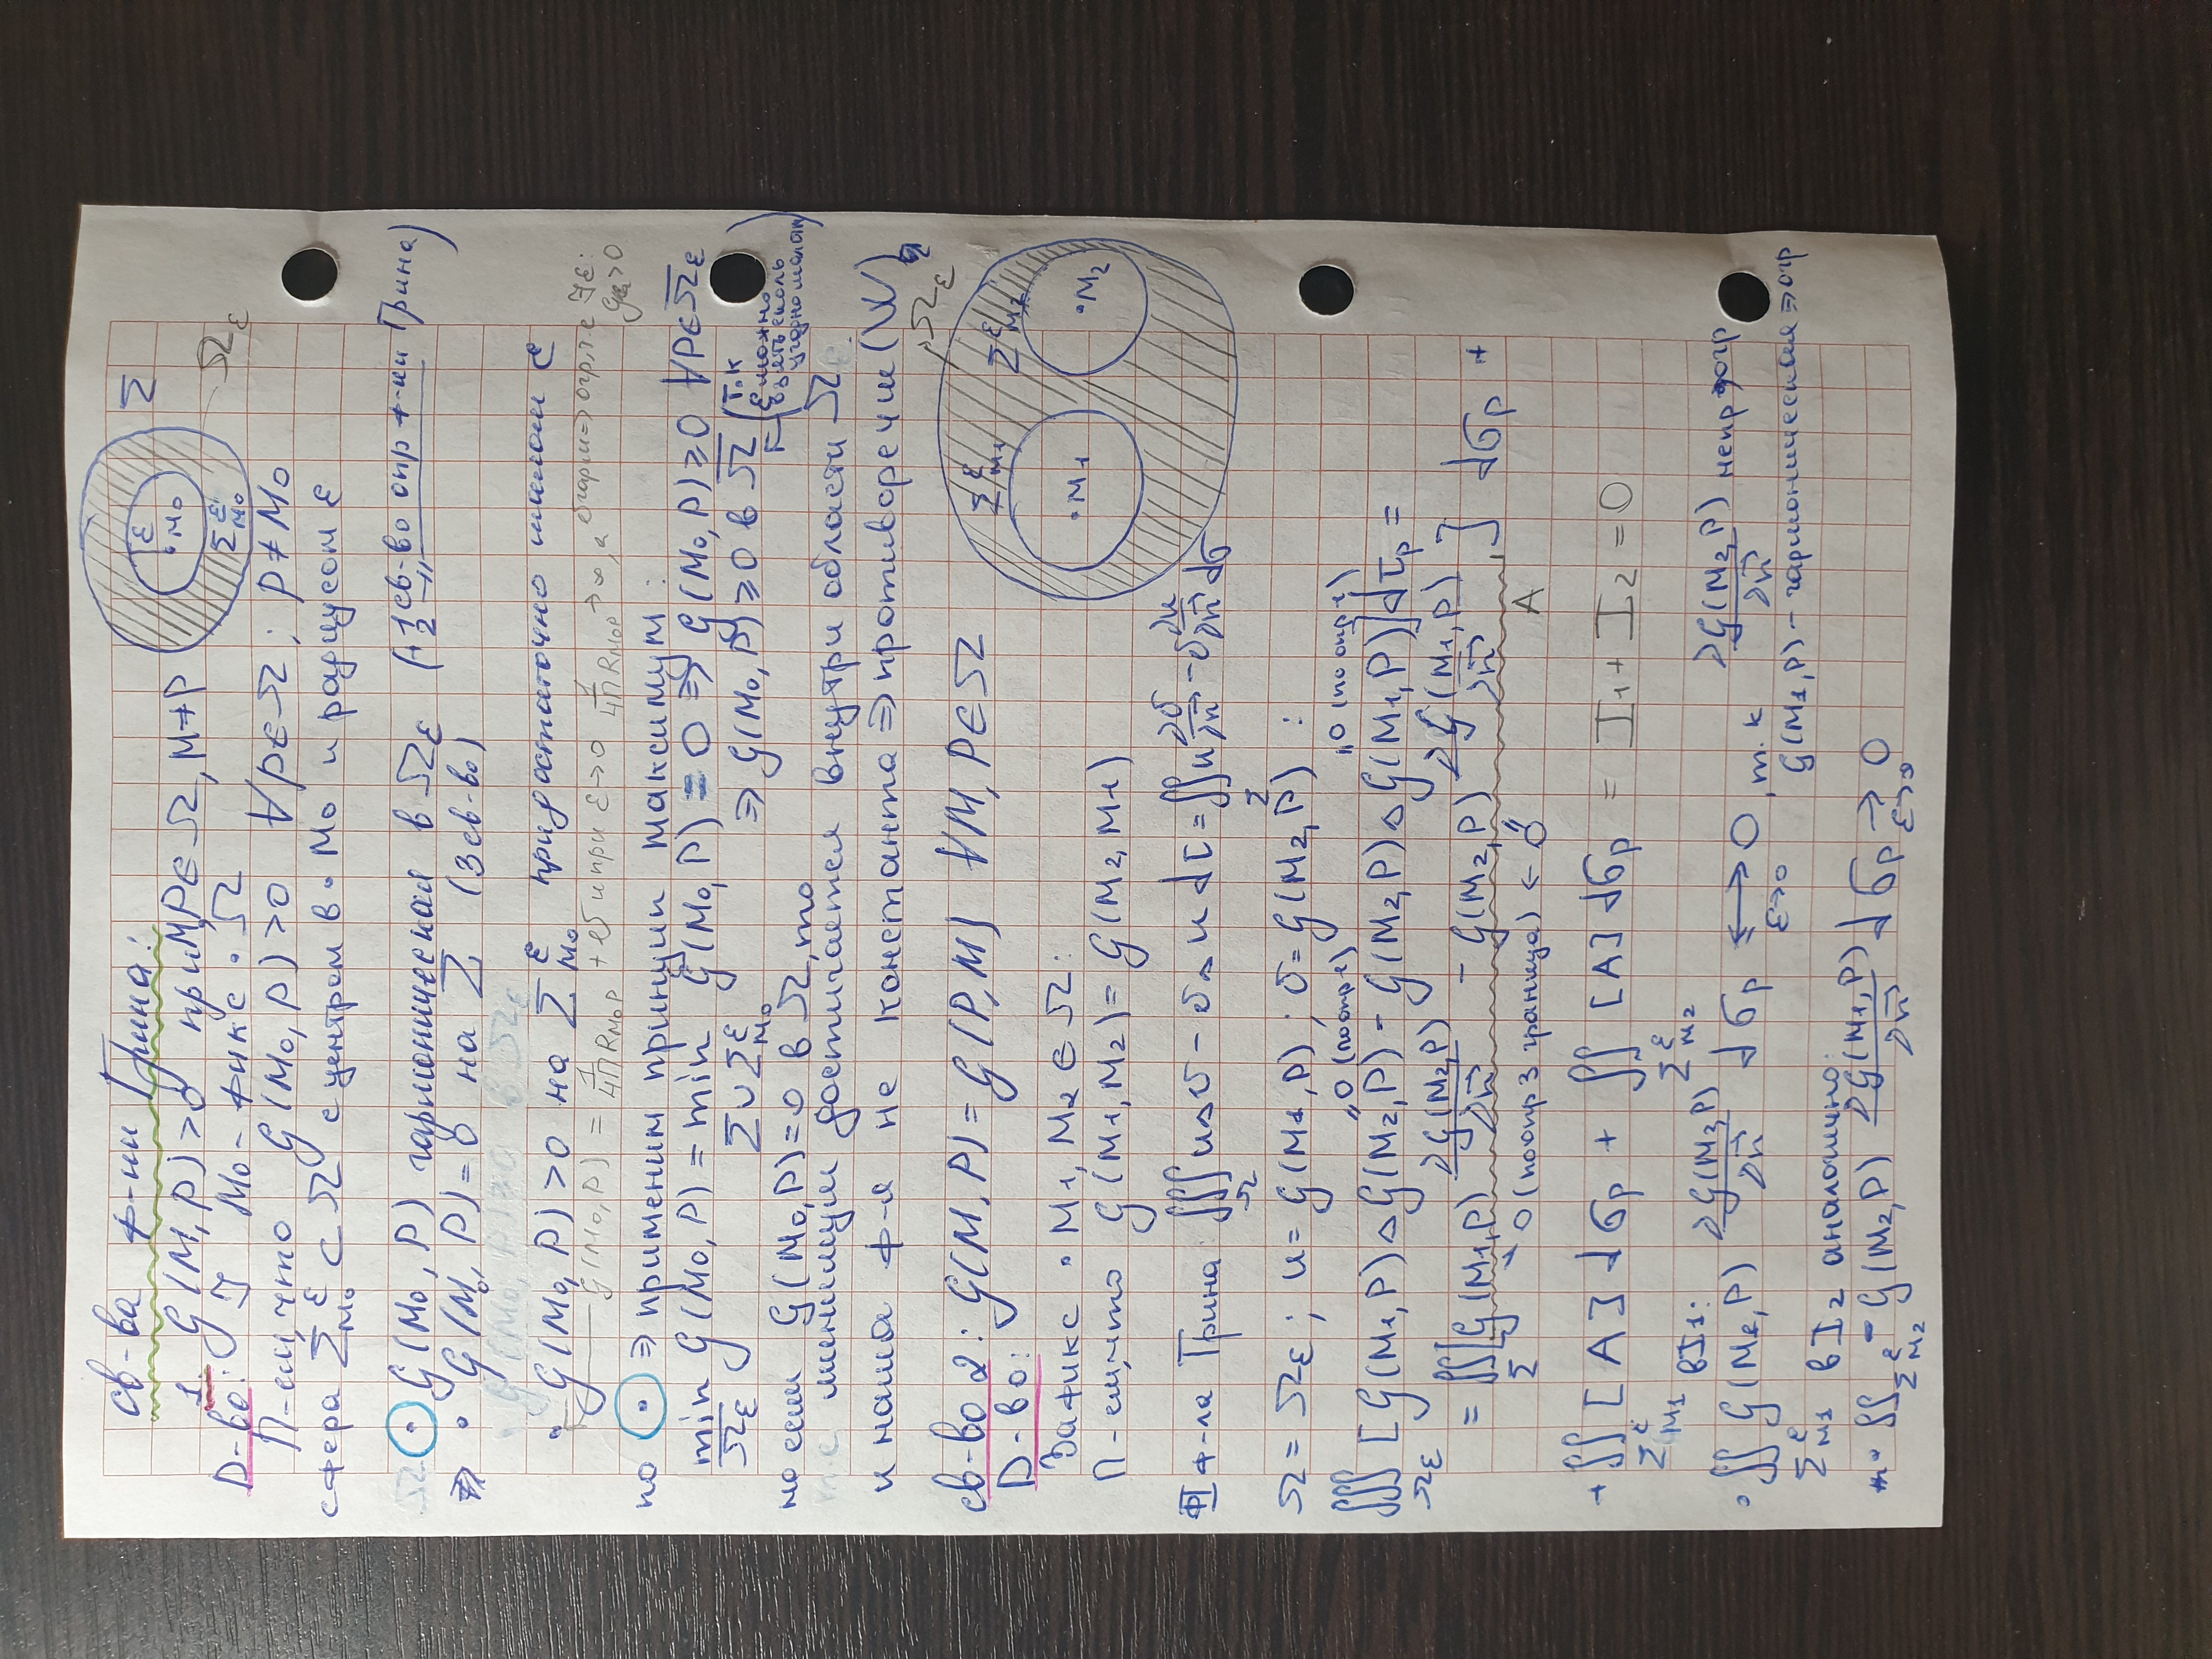 св-ва ф-ии Грина:
1 G(M,P)>0 при M,P∈Ω, M≠P
Σ
Д-во: ] M₀ - фикс. · Ω
П-ем, что G(M₀,P)>0 ∀P∈Ω: P≠M₀
сфера Σ^ε_M₀ ⊂ Ω с центром в · M₀ и радиусом ε
ε
·M₀
Σ^ε_M₀
Ω_ε
⊙ G(M₀,P) гармоническая в Ω_ε (1 и 2 св-во опр ф-ии Грина)
· G(M₀,P)=0 на Σ (3 св-во)
· G(M₀,P)>0 на Σ^ε_M₀ при достаточно малом ε
G(M₀,P) = 1/4πR_M₀P + v и при ε→0 1/4πR_M₀P →∞, а v гарм ⇒ огр ⇒ ∃ε: G>0
по ⊙ ⇒ применим принцип максимум:
min G(M₀,P) = min G(M₀,P) = 0 ⇒ G(M₀,P)≥0 ∀P∈Ω̄_ε
Ω̄_ε Σ∪Σ^ε_M₀ ⇒ G(M₀,P)≥0 в Ω̄ (т.к ε можно взять сколь угодно малым)
но если G(M₀,P)=0 в Ω, то
т.е. минимум достигается внутри области Ω
и наша ф-я не константа ⇒ противоречие (W)
св-во 2: G(M,P) = G(P,M) ∀M,P∈Ω
Д-во:
Зафикс · M₁, M₂ ∈ Ω:
П-ем, что G(M₁,M₂) = G(M₂,M₁)
Σ^ε_M₁
·M₁
Σ^ε_M₂
·M₂
Ω_ε
II ф-ла Грина ∭_Ω uΔv - vΔu dτ = ∬_Σ u ∂v/∂n⃗ - v ∂u/∂n⃗ dσ
Ω = Ω_ε; u = G(M₁,P); v = G(M₂,P):
"0 (по опр 1) "0 (по опр 1)
∭_Ω_ε [G(M₁,P)ΔG(M₂,P) - G(M₂,P)ΔG(M₁,P)]dτ_P =
= ∬_Σ [G(M₁,P) ∂G(M₂,P)/∂n⃗ - G(M₂,P) ∂G(M₁,P)/∂n⃗] dσ_P +
0 (по опр 3 граница) ← 0 A
+ ∬_Σ^ε_M₁ [A] dσ_P + ∬_Σ^ε_M₂ [A] dσ_P = I₁ + I₂ = 0
в I₁:
· ∬_Σ^ε_M₁ G(M₂,P) ∂G(M₂,P)/∂n⃗ dσ_P → 0, т.к ∂G(M₂,P)/∂n⃗ непр огр
ε→0 G(M₁,P) - гармоническая ⇒ огр
в I₂ аналогично:
· ∬_Σ^ε_M₂ - G(M₂,P) ∂G(M₁,P)/∂n⃗ dσ_P → 0
ε→0